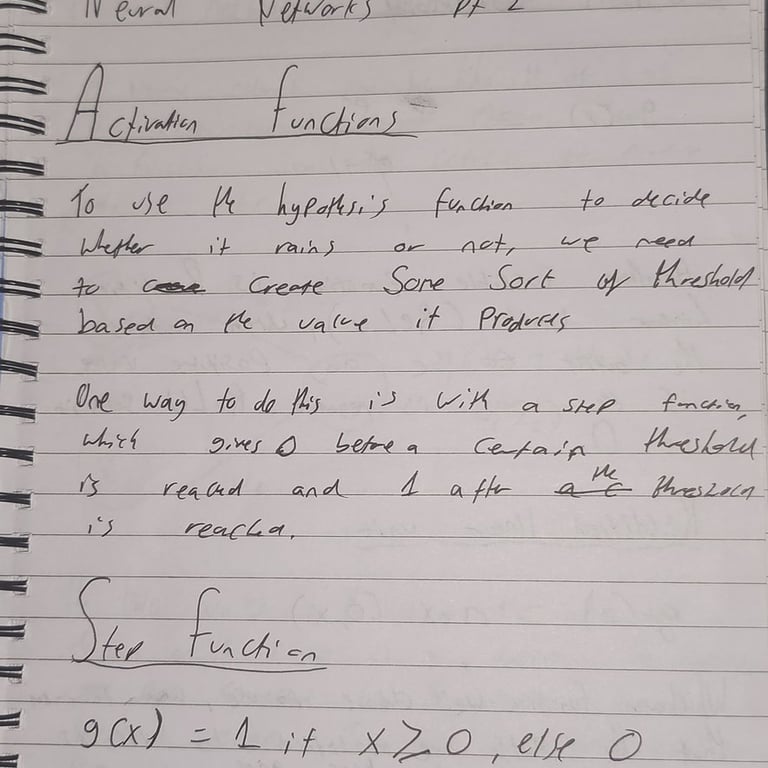 Neural Networks pt 2
Activation Functions
To use the hypothesis function to decide
whether it rains or not, we need
to create some sort of threshold
based on the value it produces
One way to do this is with a step function,
which gives 0 before a certain threshold
is reached and 1 after the threshold
is reached.
Step Function
g(x) = 1 if x ≥ 0, else 0